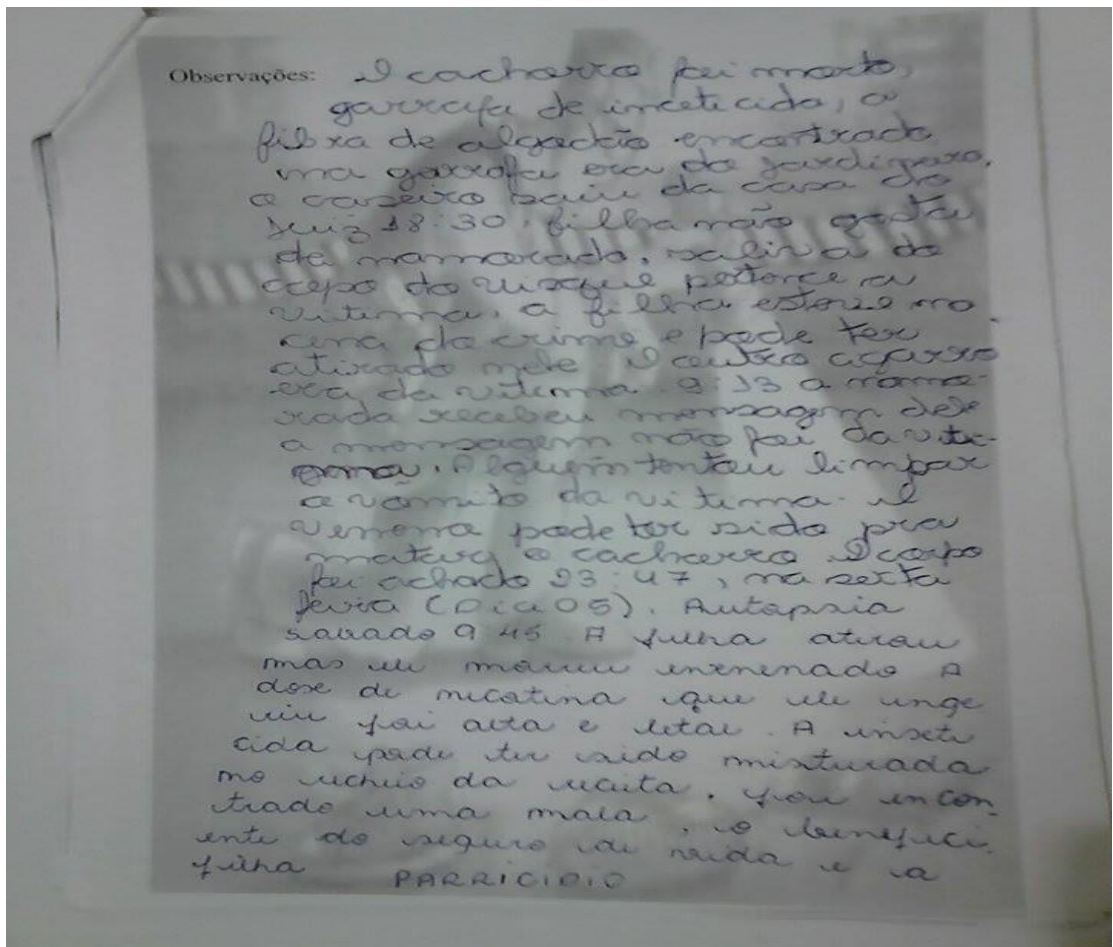 Observações: O cachorro foi morto,
garrafa de inceticida, a
fibra de algodão encontrado
na garrafa era do jardineiro.
o caseiro saiu da casa do
Juiz 18:30. filha não gosta
da namorada. saliva do
copo do uisque pertence a
vitima. a filha esteve no
cena do crime e pode ter
atirado nele O cigarro
era da vitima 9:13 a namo-
rada recebeu mensagem dele
a mensagem não foi da viti-
ma. Alguem tentou limpar
o vômito da vitima. O
veneno pode ter sido pra
matar o cachorro O corpo
foi achado 23:47, na sexta
feira (Dia 05). Autopsia
sabado 9 45 A filha atirou
mas ele morreu envenenado A
dose de nicotina que ele inge
riu foi alta e letal. A inseti
cida pode ter sido misturada
no recheio da . foi encon
trado uma mala, o benefici
ente do seguro de vida e a
filha PARRICIDIO